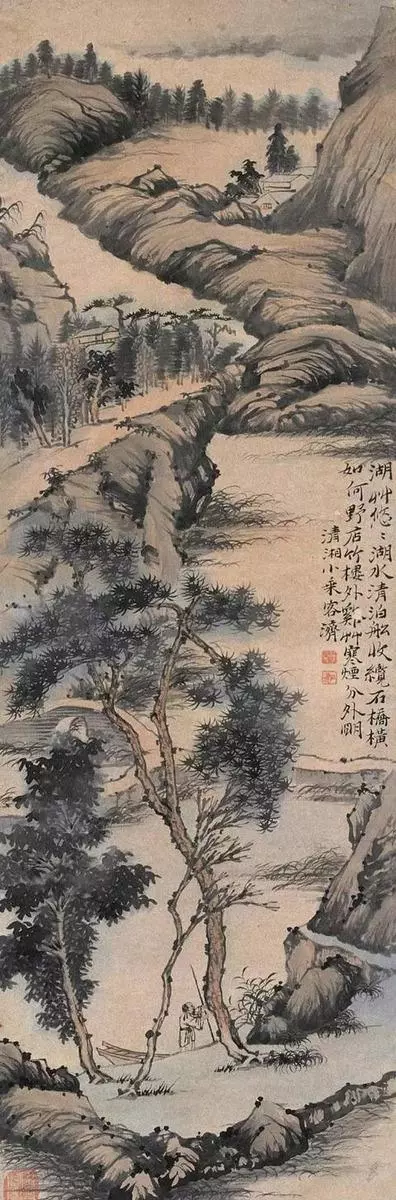 湖艸悠々湖水清泊船收纜石橋橫
如何野店竹樓外奚艸寒煙分外明
清湘小乘客濟